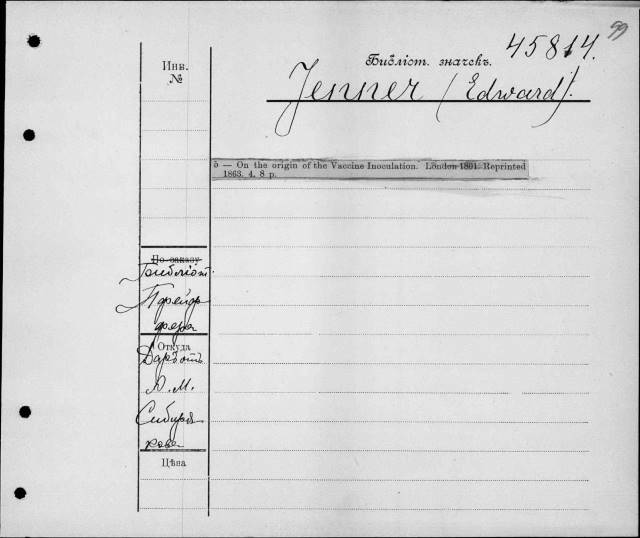 99
45814.
Библіот. значекъ.
Инв.
№
Jenner (Edward).
5 — On the origin of the Vaccine Inoculation. London 1801. Reprinted
1863. 4. 8 p.
По заказу
Библіот.
Пфейф
фера
Откуда
Даръ отъ
А. М.
Сибиря
кова
Цѣна